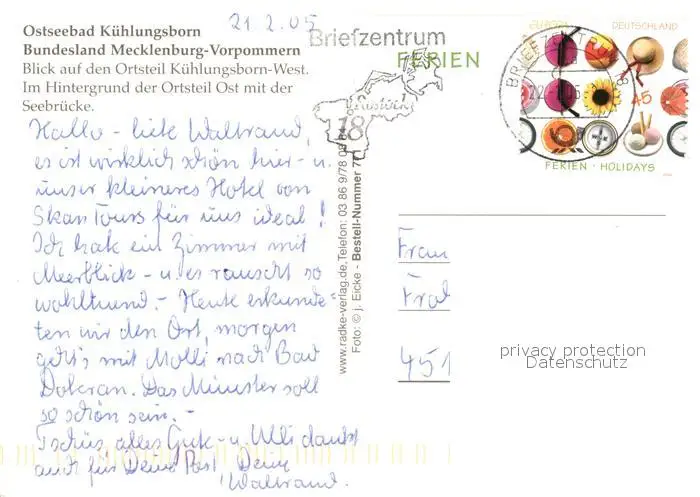 21.2.05
Ostseebad Kühlungsborn
Bundesland Mecklenburg-Vorpommern
Blick auf den Ortsteil Kühlungsborn-West.
Im Hintergrund der Ortsteil Ost mit der
Seebrücke.
Hallo - liebe Waltraud,
es ist wirklich schön hier - u.
unser kleineres Hotel von
Skan Tours für uns ideal!
Ich hab ein Zimmer mit
Meerblick - u. es rauscht so
wohltuend. - Heute erkunde-
ten wir den Ort, morgen
geht's mit Molli nach Bad
Doberan. Das Münster soll
so schön sein. -
Tschüs, alles Gute - u. Ulli dankt
auch für Deine Post Deine
Waltraud.
www.radke-verlag.de, Telefon: 03 86 9/78 08
Foto: © j. Eicke - Bestell-Nummer
Briefzentrum
18
FERIEN
EUROPA
DEUTSCHLAND
BRIEFZENTRUM
45
FERIEN · HOLIDAYS
Frau
451
privacy protection
Datenschutz